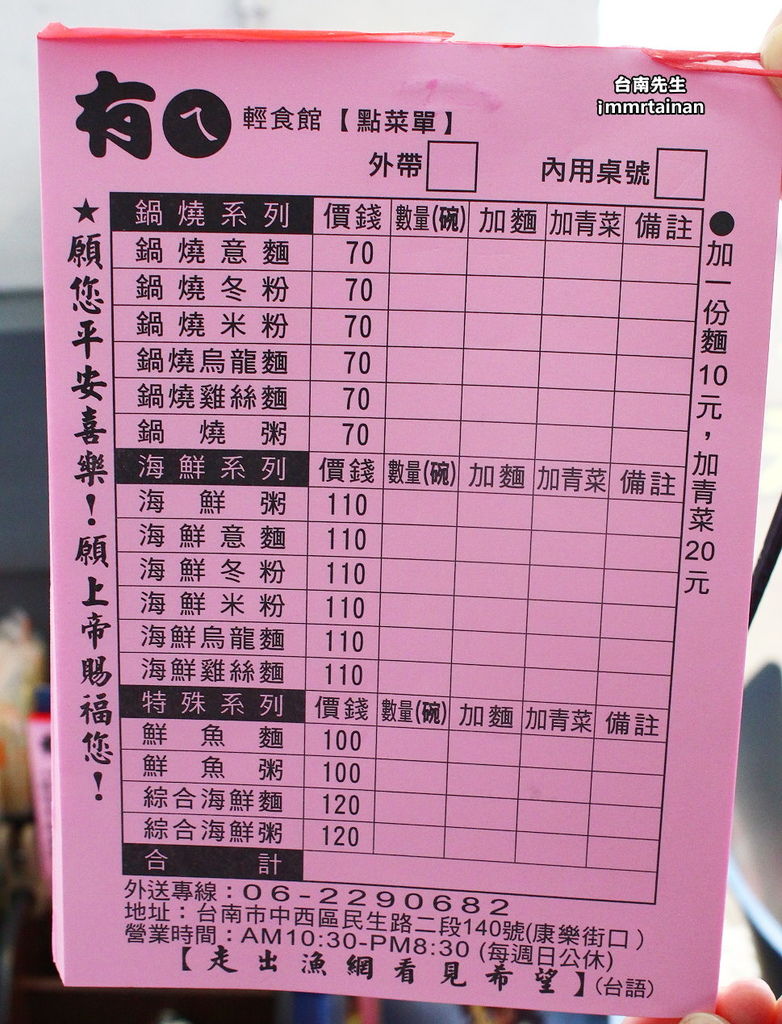 台南先生
jmmrtainan
有ㄟ 輕食館【點菜單】
外帶 內用桌號
鍋燒系列 價錢 數量(碗) 加麵 加青菜 備註
鍋燒意麵 70
鍋燒冬粉 70
鍋燒米粉 70
鍋燒烏龍麵 70
鍋燒雞絲麵 70
鍋燒粥 70
海鮮系列 價錢 數量(碗) 加麵 加青菜 備註
海鮮粥 110
海鮮意麵 110
海鮮冬粉 110
海鮮米粉 110
海鮮烏龍麵 110
海鮮雞絲麵 110
特殊系列 價錢 數量(碗) 加麵 加青菜 備註
鮮魚麵 100
鮮魚粥 100
綜合海鮮麵 120
綜合海鮮粥 120
合計
★願您平安喜樂!願上帝賜福您!
●加一份麵10元,加青菜20元
外送專線:06-2290682
地址:台南市中西區民生路二段140號(康樂街口)
營業時間:AM10:30-PM8:30 (每週日公休)
【走出漁網看見希望】(台語)